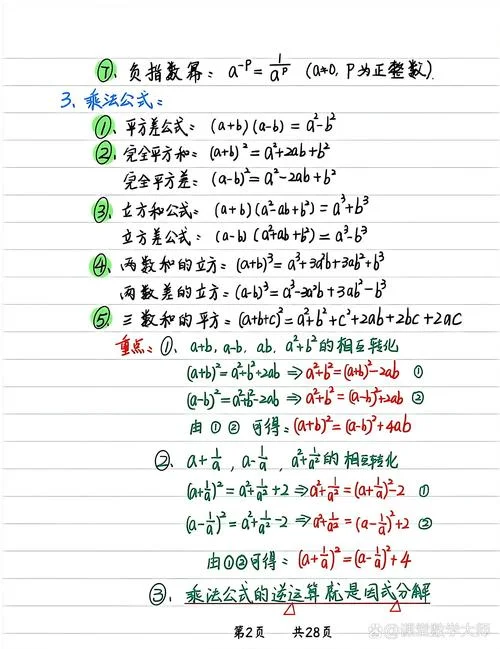 ⑦. 负指数幂: a⁻ᵖ = 1/aᵖ (a≠0, P为正整数).
3. 乘法公式:
①. 平方差公式: (a+b)(a-b) = a²-b²
②. 完全平方和: (a+b)² = a²+2ab+b²
完全平方差: (a-b)² = a²-2ab+b²
③. 立方和公式: (a+b)(a²-ab+b²) = a³+b³
立方差公式: (a-b)(a²+ab+b²) = a³-b³
④. 两数和的立方: (a+b)³ = a³+3a²b+3ab²+b³
两数差的立方: (a-b)³ = a³-3a²b+3ab²-b³
⑤. 三数和的平方: (a+b+c)² = a²+b²+c²+2ab+2bc+2ac
重点: ①. a+b, a-b, ab, a²+b²的相互转化
(a+b)² = a²+b²+2ab ⇒ a²+b² = (a+b)²-2ab ①
(a-b)² = a²+b²-2ab ⇒ a²+b² = (a-b)²+2ab ②
由①②可得: (a+b)² = (a-b)²+4ab
②. a+1/a, a-1/a, a²+1/a²的相互转化
(a+1/a)² = a²+1/a²+2 ⇒ a²+1/a² = (a+1/a)²-2 ①
(a-1/a)² = a²+1/a²-2 ⇒ a²+1/a² = (a-1/a)²+2 ②
由①②可得: (a+1/a)² = (a-1/a)²+4
③. 乘法公式的逆运算就是因式分解
第2页 共28页
课堂数学大师